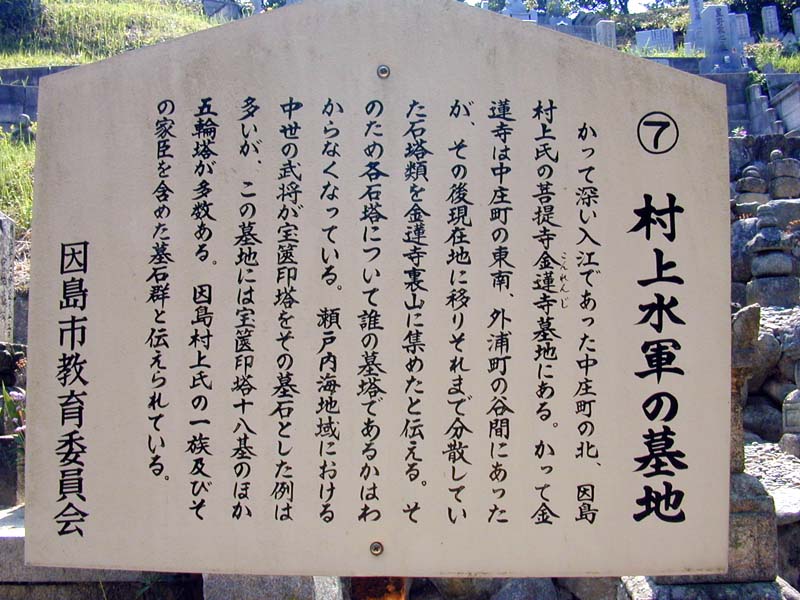 ⑦ 村上水軍の墓地
かって深い入江であった中庄町の北、因島
村上氏の菩提寺金蓮寺墓地にある。かって金
こんれんじ
蓮寺は中庄町の東南、外浦町の谷間にあった
が、その後現在地に移りそれまで分散してい
た石塔類を金蓮寺裏山に集めたと伝える。そ
のため各石塔について誰の墓塔であるかはわ
からなくなっている。瀬戸内海地域における
中世の武将が宝篋印塔をその墓石とした例は
多いが、この墓地には宝篋印塔十八基のほか
五輪塔が多数ある。因島村上氏の一族及びそ
の家臣を含めた墓石群と伝えられている。
因島市教育委員会